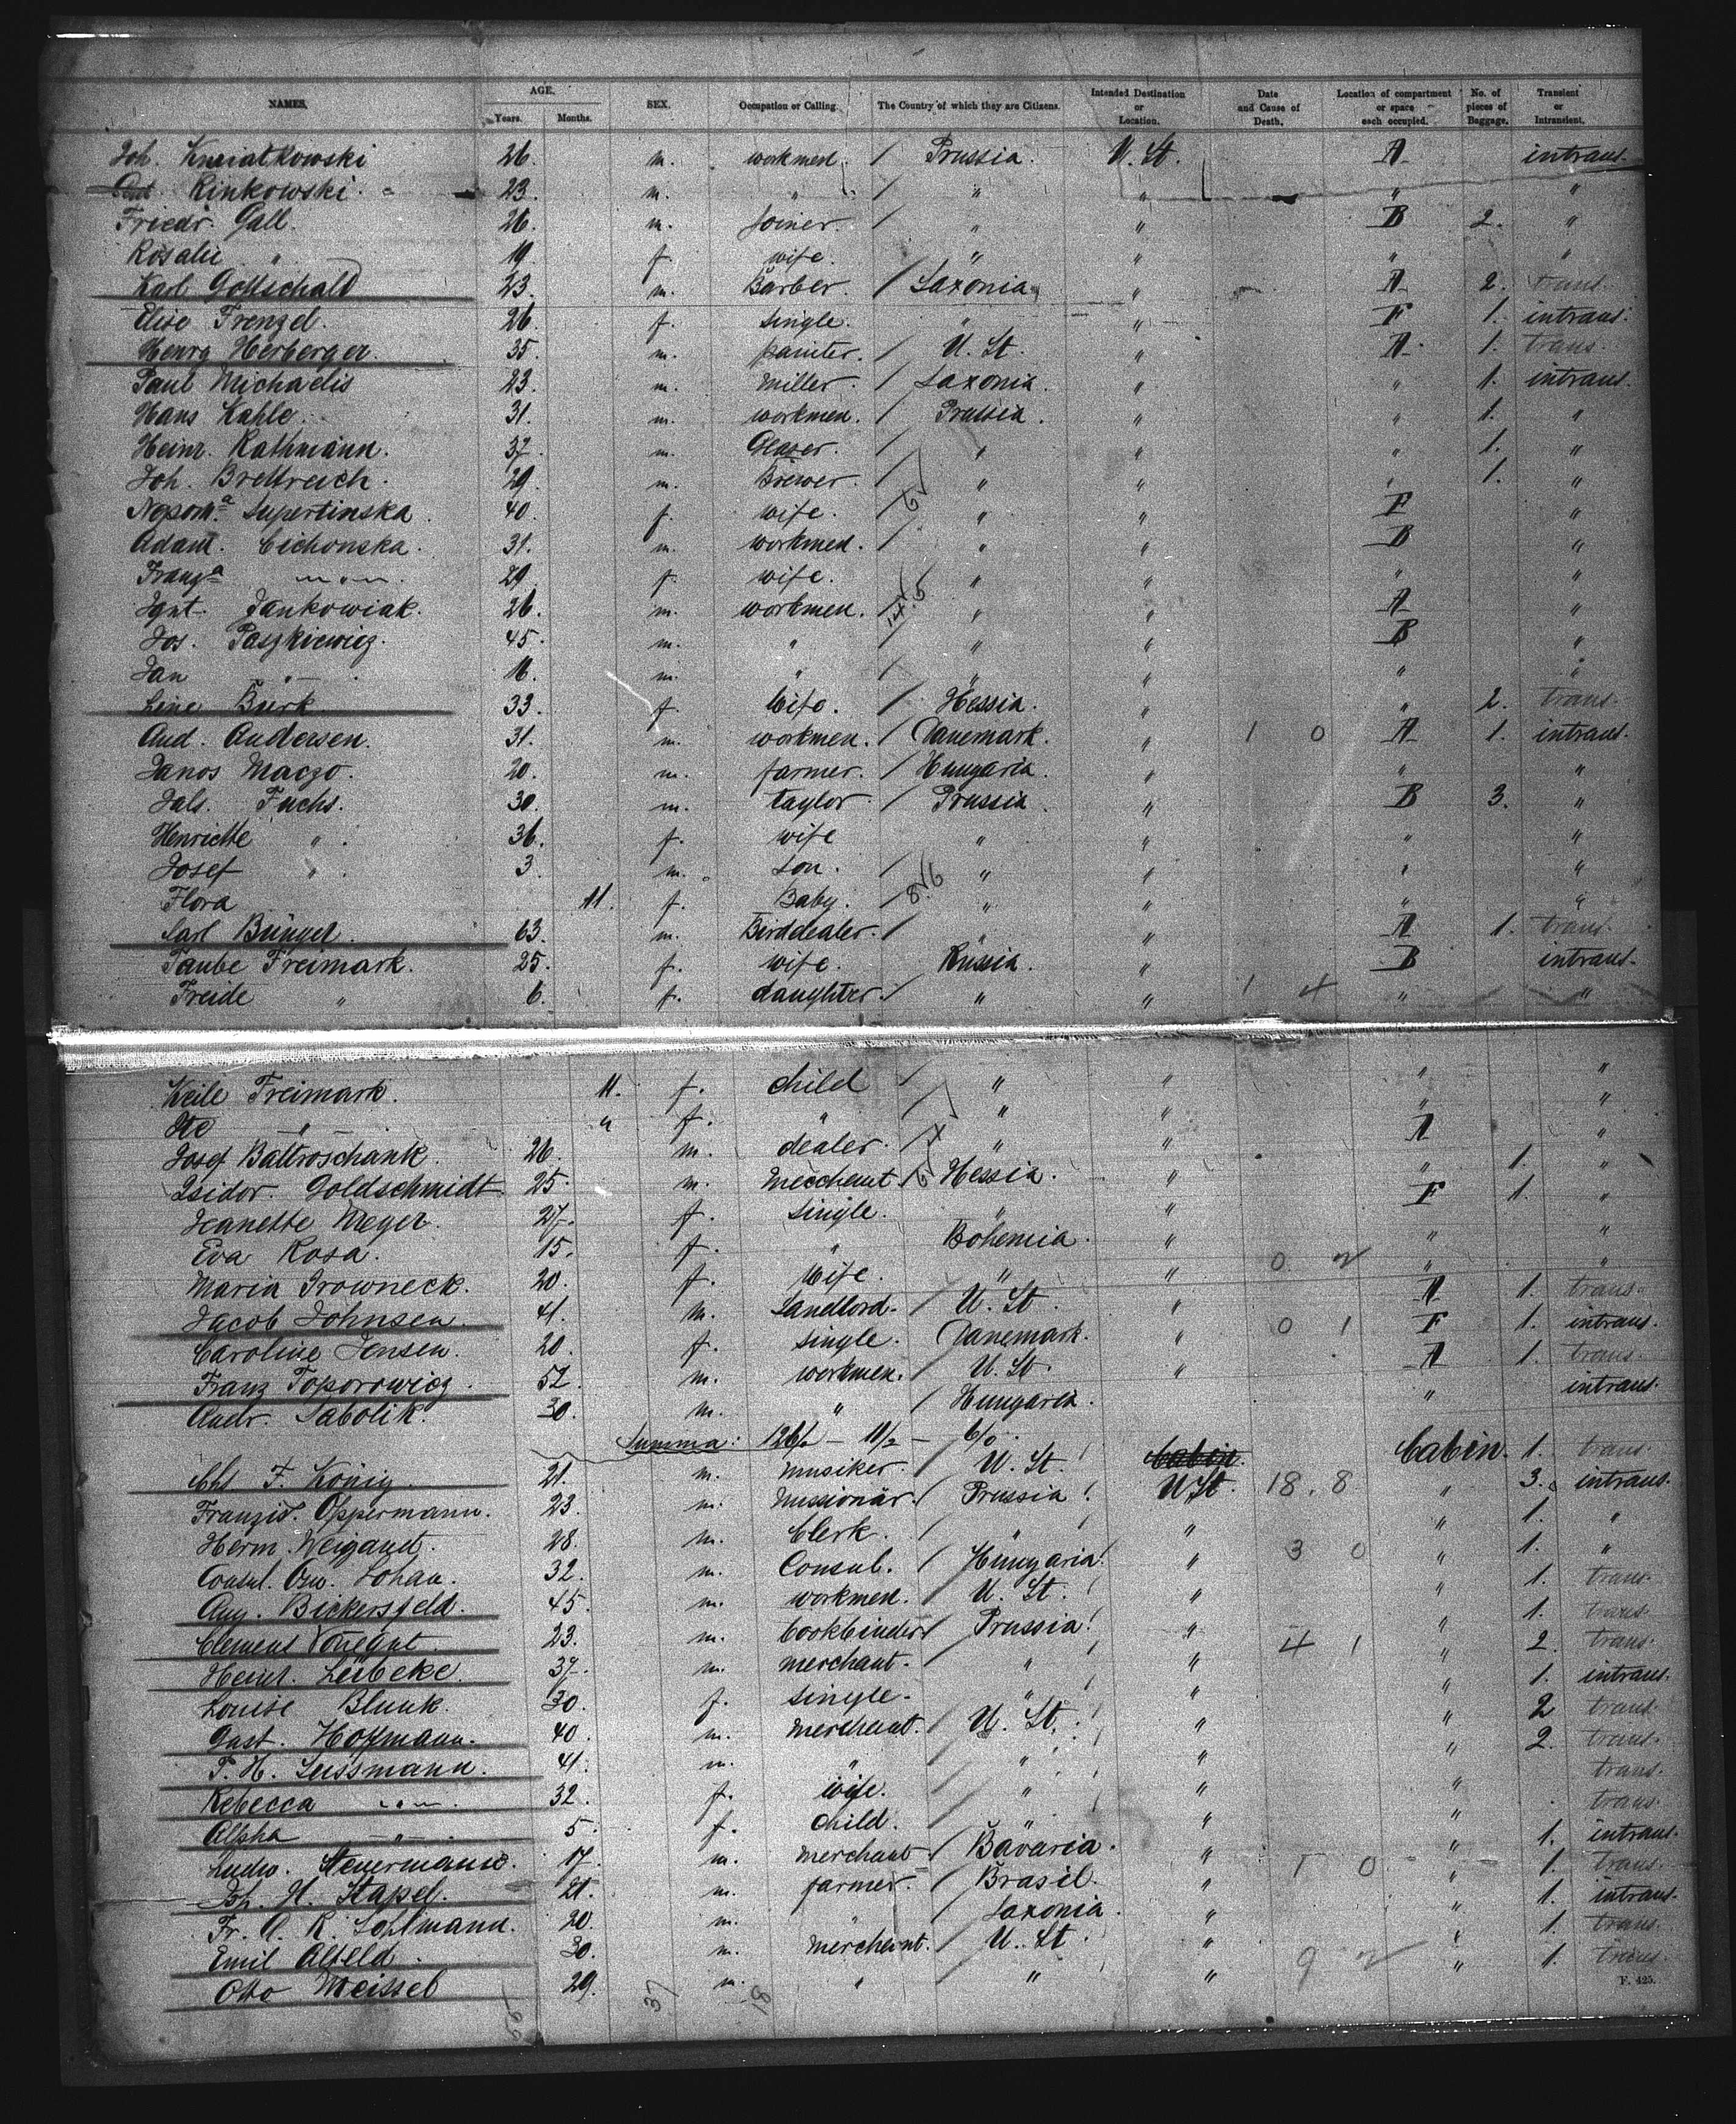 NAMES. AGE. Years. Months. SEX. Occupation or Calling. The Country of which they are Citizens. Intended Destination or Location. Date and Cause of Death. Location of compartment or space each occupied. No. of pieces of Baggage. Transient or Intransient.
Joh. Kwiatkowski 26. m. workmen. / Prussia. U. St. A intrans.
Rinkowski. 23. m. " / " " " "
Friedr. Gall. 26. m. Joiner. / " " B 2. "
Rosalie " 19. f. wife. " " " "
Karl Gottschald 23. m. Barber. / Saxonia " A 2. trans.
Elise Frenzel. 26. f. single. " " F 1. intrans.
Henry Herberger. 35. m. painter. / U. St. " A 1. trans.
Paul Michaelis 23. m. Miller. / Saxonia. " " 1. intrans.
Hans Kahle. 31. m. workmen. / Prussia. " " 1. "
Heinr. Rathmann. 37. m. Glaser. / " " " 1. "
Joh. Brettreich. 29. m. Brewer. / " " " 1. "
Nepom.a Supertinska. 40. f. wife. / " " F "
Adam. Cichonska. 31. m. workmen. / " " B "
Franz.a " 29. f. wife. " " " "
Ignt. Jankowiak. 26. m. workmen. / " " A "
Jos. Paszkiewicz. 45. m. " / " " B "
Jan " 16. m. " / " " " "
Line Burk 33. f. Wife. / Hessia. " " 2. trans.
And. Andersen. 31. m. workmen. / Danemark. " 1 0 A 1. intrans.
Janos Maczo. 20. m. farmer. / Hungaria. " " "
Jals. Fuchs. 30. m. taylor. / Prussia. " B 3. "
Henriette " 36. f. wife " " " "
Josef " 3. m. Son. / " " " "
Flora 11. f. Baby. / " " " "
Carl Bünger. 63. m. Birddealer. / " " A 1. trans.
Taube Freimark. 25. f. wife. Russia. " B intrans.
Freide " 6. f. daughter. / " " 1 4 " "
Keile Freimark. 11. f. child / " " " "
Ite " " f. " / " " " "
Josef Battroschank. 26. m. dealer. / " " A "
Isidor. Goldschmidt. 25. m. Merchant. / Hessia. " " 1. "
Jeanette Meyer. 27. f. single. " " F 1. "
Eva Rosa. 15. f. " Bohemia. " " "
Maria Trowneck. 20. f. Wife. " " 0 2 " "
Jacob Johnsen. 41. m. Landlord. / U. St. " A 1. trans.
Caroline Jensen. 20. f. single. Danemark. " 0 1 F 1. intrans.
Franz Toporowicz. 52. m. workmen. / U. St. " A 1. trans.
Andr. Sabolik. 30. m. " / Hungaria. " intrans.
Summa: 126/1 - 11/2 - 6/0.
Chs F. König. 21. m. Musiker. / U. St. Cabin. Cabin. 1. trans.
Franzis. Oppermann. 23. m. Missionär. / Prussia. U. St. 18. 8 " 3. intrans.
Herm. Weigandt. 28. m. Clerk. / " " " 1. "
Consul. Osw. Lohan. 32. m. Consul. / Hungaria. " 3 0 " 1. "
Aug. Bickersfeld. 45. m. workmen. / U. St. " " 1. trans.
Clement Vonegut. 23. m. bookbinder / Prussia. " " 1. trans.
Heinr. Lübcke. 37. m. merchant. / " " 4 1 " 2. trans.
Louise Blunk. 30. f. single. " " " 1. intrans.
Gust. Hoffmann. 40. m. Merchant. / U. St. " " 2 trans.
F. H. Leissmann. 41. m. " / " " " 2. trans.
Rebecca " 32. f. wife. / " " " trans.
Alpha " 5. f. child. / " " " trans.
Ludw. Steuermann. 17. m. Merchant. / Bavaria. " " 1. intrans.
Joh. H. Stapel. 21. m. farmer. / Brasil. " 1 0 " 1. trans.
Fr. A. R. Sohlmann. 20. m. " / Saxonia. " " 1. intrans.
Emil Alfeld. 30. m. Merchant. / U. St. " " 1. trans.
Otto Meissel 29. m. " " " 9 2 " 1. trans.
F. 425.
37 81